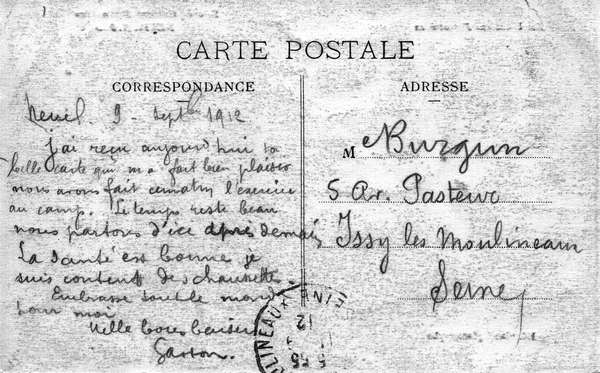 CARTE POSTALE
CORRESPONDANCE
9 Septbre 1912
j'ai reçu aujourd'hui ta
belle carte qui m'a fait bien plaisir
nous avons fait ce matin l'exercice
au camp. Le temps reste beau
nous partons d'ici après demain
La santé est bonne je
suis content des chaussettes
Embrasse tout le monde
pour moi
Mille bons baisers
Gaston.
ADRESSE
M Burgun
5 Av. Pasteur
Issy les Moulineaux
Seine
MOULINEAUX SEINE
12